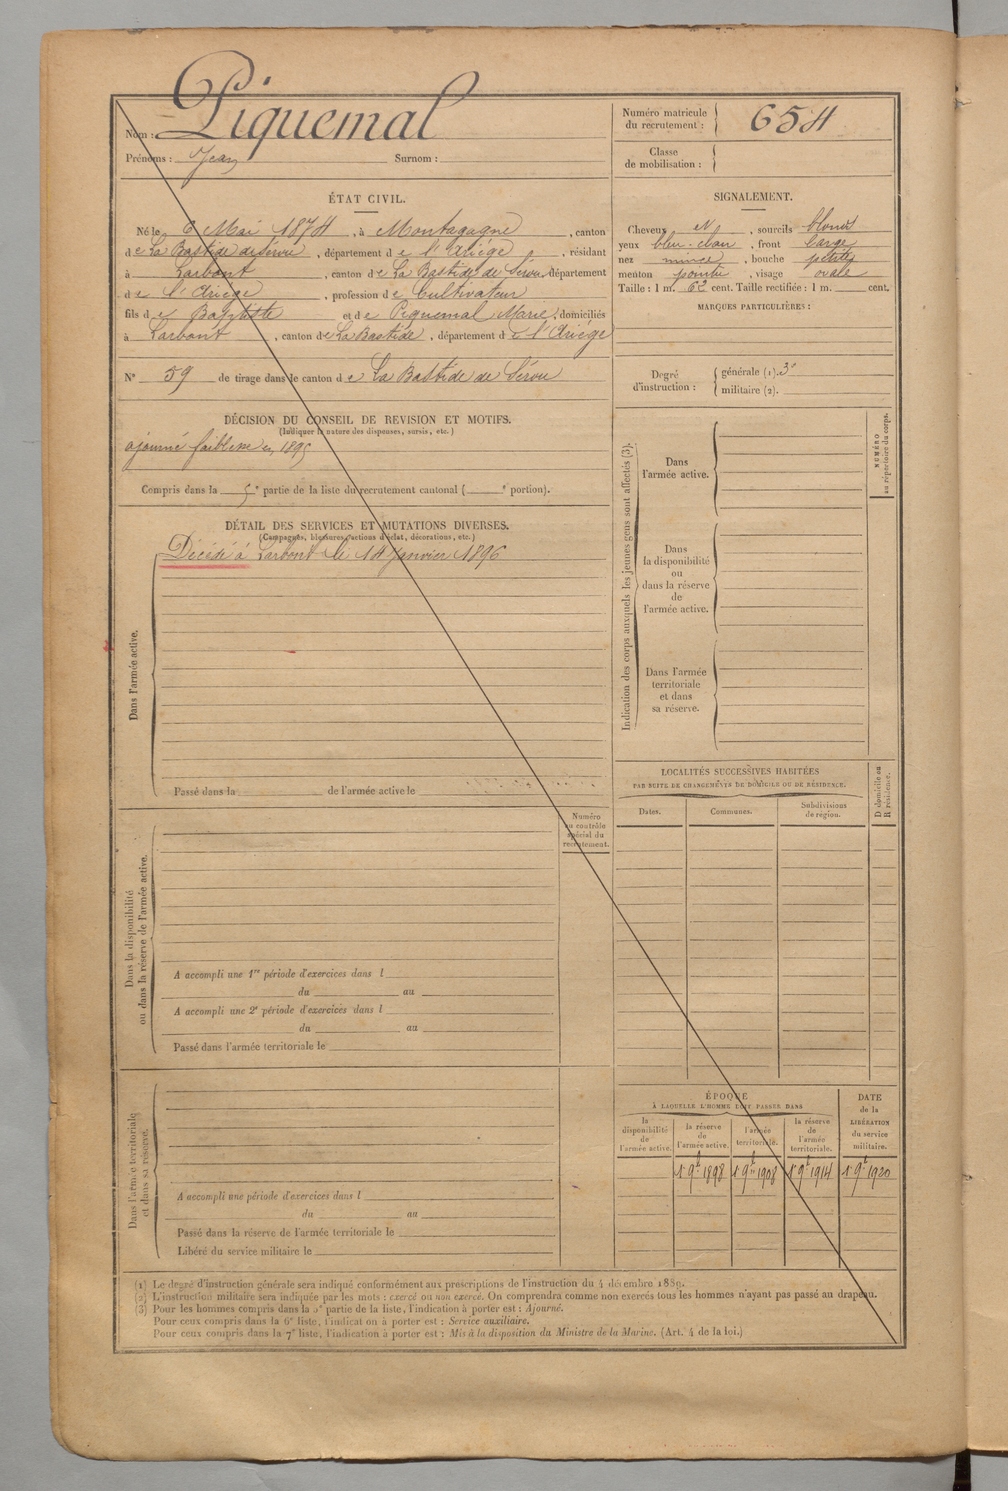 Nom : Piquemal
Prénoms : Jean Surnom :
Numéro matricule du recrutement : 654
Classe de mobilisation :
ÉTAT CIVIL.
Né le 6 Mai 1874, à Montagagne, canton
de La Bastide de Sérou, département de l'Ariège, résidant
à Larbont, canton de La Bastide de Sérou, département
de l'Ariège, profession de Cultivateur
fils de Baptiste et de Piquemal Marie, domiciliés
à Larbont, canton de La Bastide, département de l'Ariège
N° 59 de tirage dans le canton de La Bastide de Sérou
SIGNALEMENT.
Cheveux et, sourcils blonds
yeux bleu-clair, front large
nez mince, bouche petite
menton pointu, visage ovale
Taille : 1 m. 62 cent. Taille rectifiée : 1 m. cent.
MARQUES PARTICULIÈRES :
Degré d'instruction : générale (1). 3
militaire (2).
DÉCISION DU CONSEIL DE REVISION ET MOTIFS.
(Indiquer la nature des dispenses, sursis, etc.)
ajourné faiblesse en 1895
Compris dans la 5e partie de la liste du recrutement cantonal ( e portion).
DÉTAIL DES SERVICES ET MUTATIONS DIVERSES.
(Campagnes, blessures, actions d'éclat, décorations, etc.)
Dans l'armée active.
Décédé à Larbont le 14 Janvier 1896
Passé dans la de l'armée active le
Numéro au contrôle spécial du recrutement.
Dans la disponibilité ou dans la réserve de l'armée active.
A accompli une 1re période d'exercices dans l
du au
A accompli une 2e période d'exercices dans l
du au
Passé dans l'armée territoriale le
Dans l'armée territoriale et dans sa réserve.
A accompli une période d'exercices dans l
du au
Passé dans la réserve de l'armée territoriale le
Libéré du service militaire le
Indication des corps auxquels les jeunes gens sont affectés (3).
NUMÉRO au répertoire du corps.
Dans l'armée active.
Dans la disponibilité ou dans la réserve de l'armée active.
Dans l'armée territoriale et dans sa réserve.
LOCALITÉS SUCCESSIVES HABITÉES
PAR SUITE DE CHANGEMENTS DE DOMICILE OU DE RÉSIDENCE.
D domicile ou R résidence.
Dates. Communes. Subdivisions de région.
ÉPOQUE
À LAQUELLE L'HOMME DOIT PASSER DANS
DATE de la LIBÉRATION du service militaire.
la disponibilité de l'armée active.
la réserve de l'armée active.
l'armée territoriale.
la réserve de l'armée territoriale.
1 9b 1898 1 9b 1908 1 9b 1914 1 9b 1920
(1) Le degré d'instruction générale sera indiqué conformément aux prescriptions de l'instruction du 4 décembre 1889.
(2) L'instruction militaire sera indiquée par les mots : exercé ou non exercé. On comprendra comme non exercés tous les hommes n'ayant pas passé au drapeau.
(3) Pour les hommes compris dans la 5e partie de la liste, l'indication à porter est : Ajourné.
Pour ceux compris dans la 6e liste, l'indication à porter est : Service auxiliaire.
Pour ceux compris dans la 7e liste, l'indication à porter est : Mis à la disposition du Ministre de la Marine. (Art. 4 de la loi.)